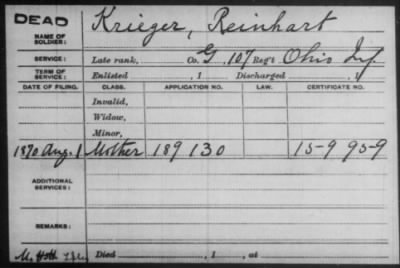 DEAD
NAME OF SOLDIER: Krieger, Reinhart
SERVICE: Late rank, Co. G, 107 Reg't Ohio Inf.
TERM OF SERVICE: Enlisted , 1 Discharged , 1
DATE OF FILING. CLASS. APPLICATION NO. LAW. CERTIFICATE NO.
Invalid,
Widow,
Minor,
1870 Aug. 1 Mother 189 130 15-9 95-9
ADDITIONAL SERVICES:
REMARKS:
Died , 1 , at